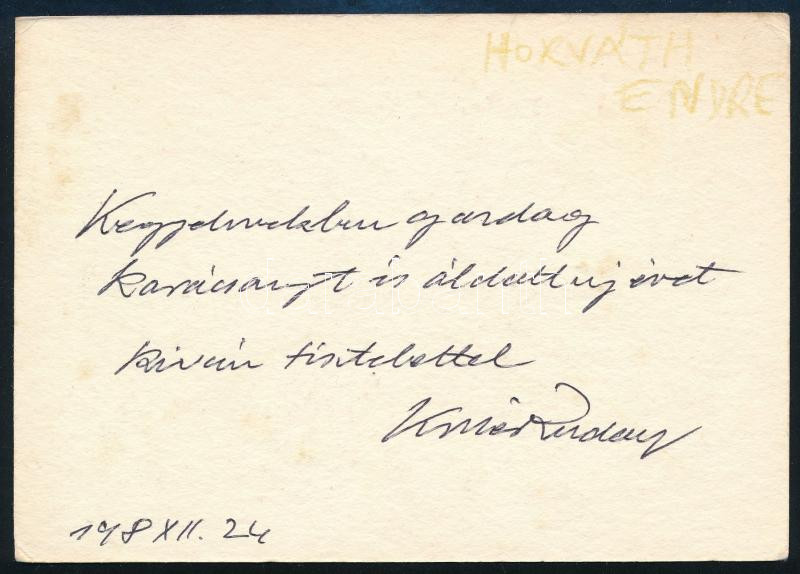 HORVÁTH
ENDRE
Kegyelmekben gazdag
karácsonyt és áldott új évet
kíván tisztelettel
198 XII. 24